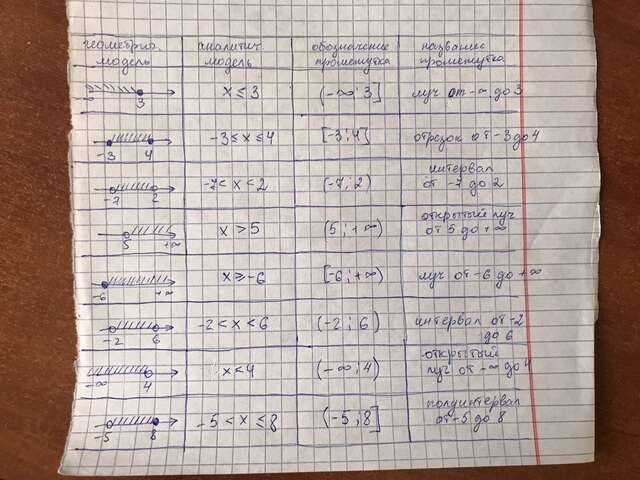 геометрич. модель аналитич. модель обозначение промежутка название промежутка
-∞ 3 x ≤ 3 (-∞; 3] луч от -∞ до 3
-3 4 -3 ≤ x ≤ 4 [-3; 4] отрезок от -3 до 4
-7 2 -7 < x < 2 (-7; 2) интервал от -7 до 2
5 +∞ x > 5 (5; +∞) открытый луч от 5 до +∞
-6 +∞ x ≥ -6 [-6; +∞) луч от -6 до +∞
-2 6 -2 < x < 6 (-2; 6) интервал от -2 до 6
-∞ 4 x < 4 (-∞; 4) открытый луч от -∞ до 4
-5 8 -5 < x ≤ 8 (-5; 8] полуинтервал от -5 до 8